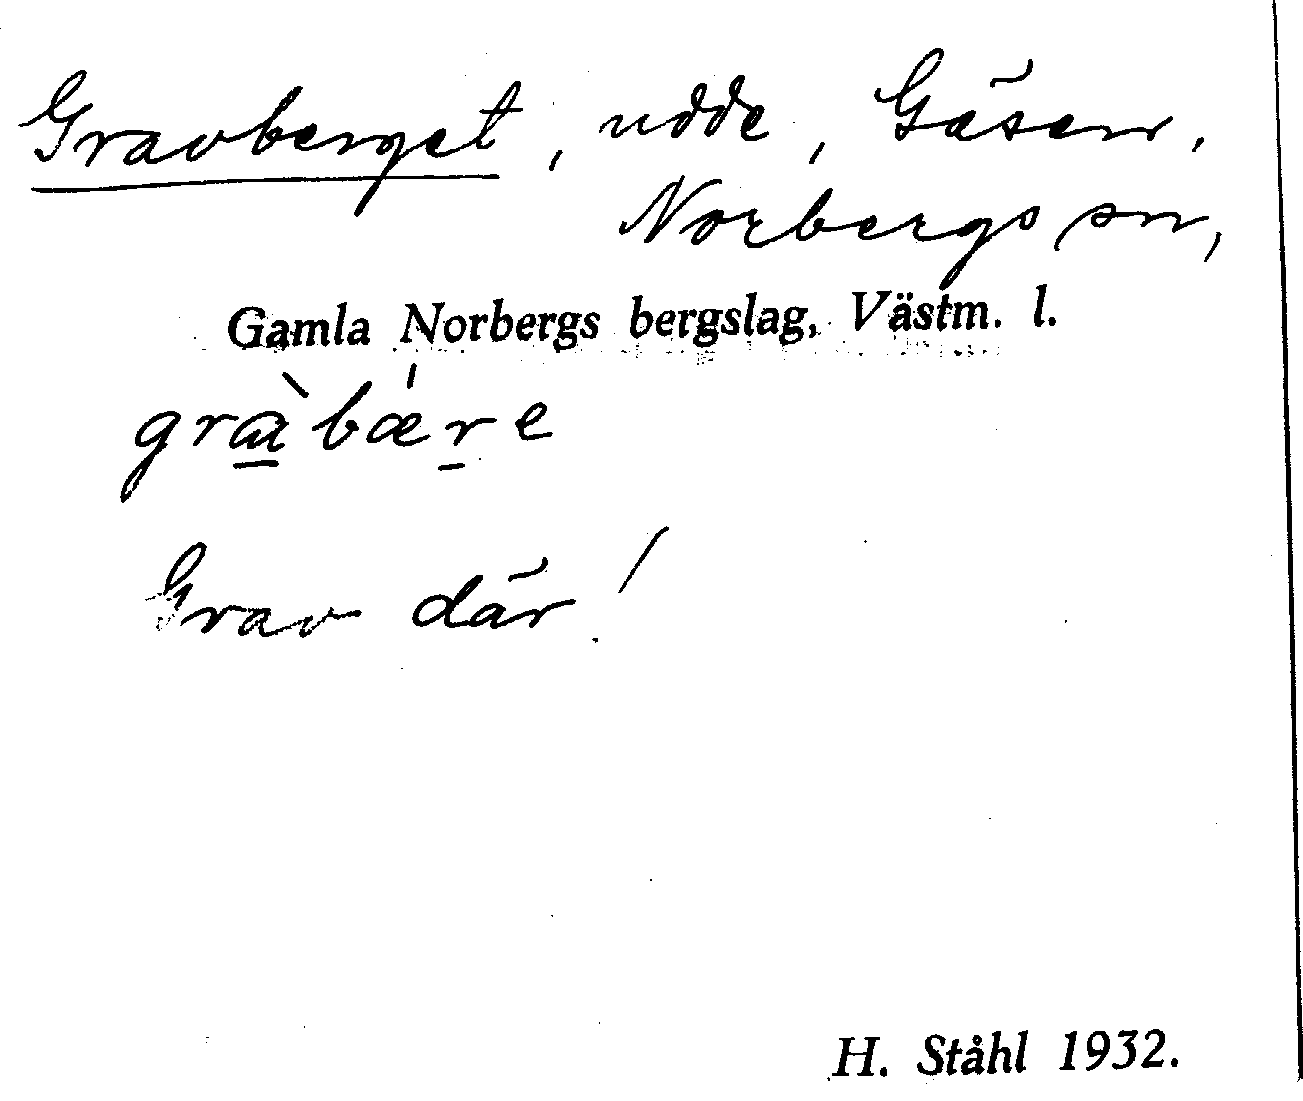 Gravberget, udde, Gäsen,
Norbergs sn,
Gamla Norbergs bergslag, Västm. l.
grà̱bǽṟe
Grav där!
H. Ståhl 1932.